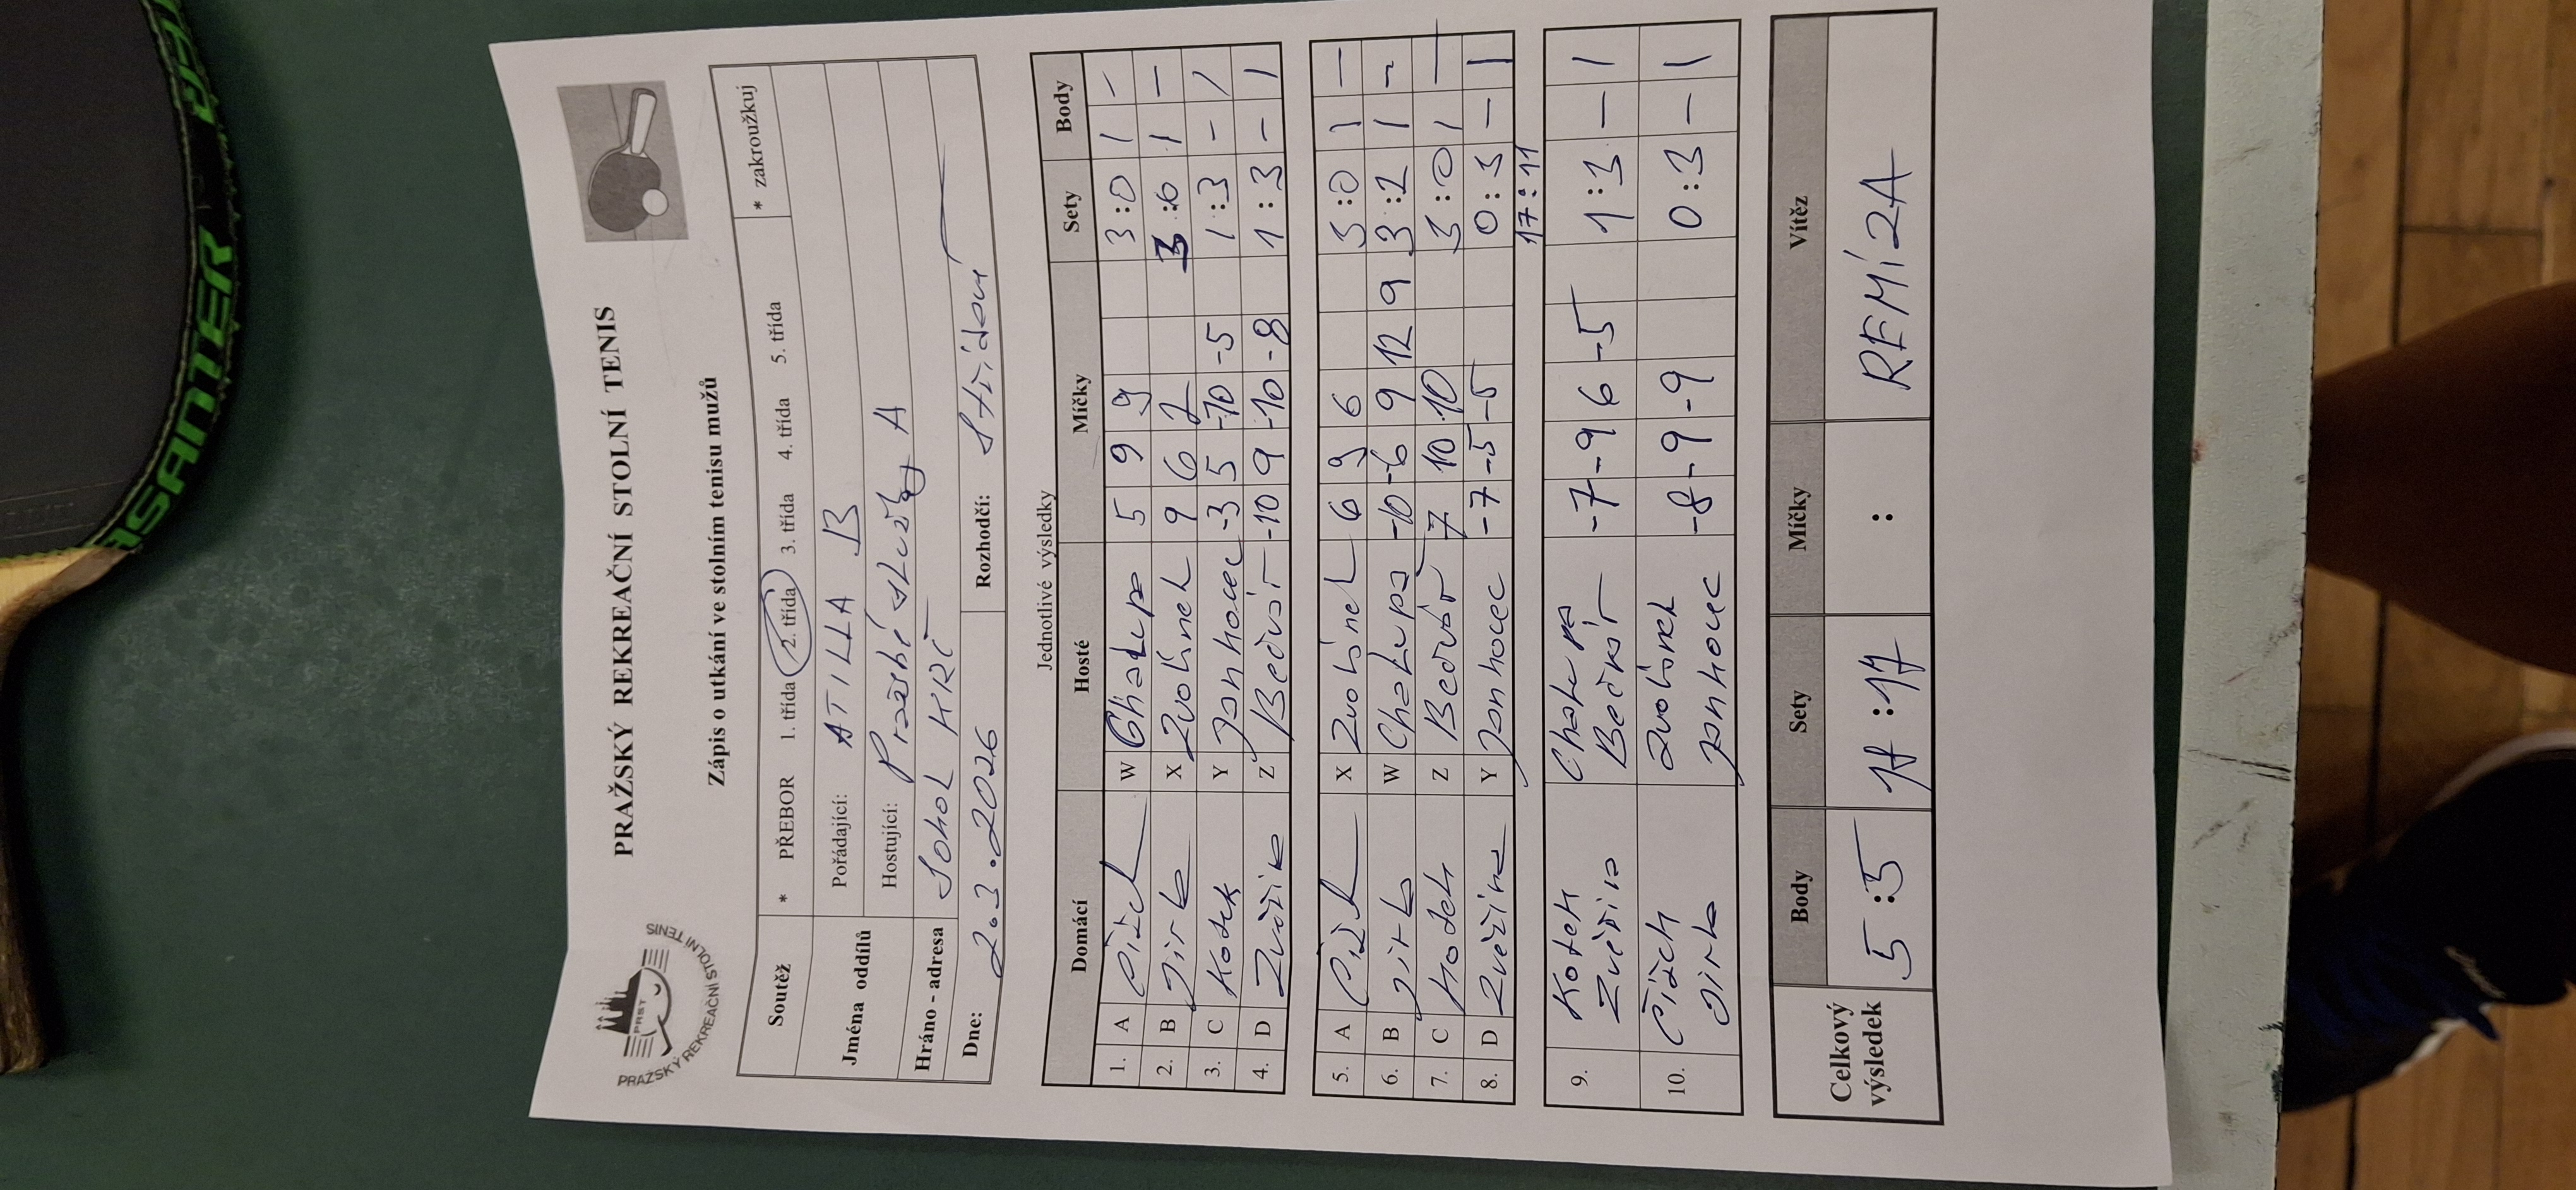 PRAŽSKÝ REKREAČNÍ STOLNÍ TENIS
PRST
PRAŽSKÝ REKREAČNÍ STOLNÍ TENIS
Zápis o utkání ve stolním tenisu mužů
Soutěž * PŘEBOR 1. třída 2. třída 3. třída 4. třída 5. třída * zakroužkuj
Jména oddílů Pořádající: ATILLA B
Hostující: Pražské služby A
Hráno - adresa SOKOL KRČ
Dne: 2.3.2026 Rozhodčí: střídaví
Jednotlivé výsledky
Domácí Hosté Míčky Sety Body
1. A Čížek W Chalupa 5 9 9 3:0 1 -
2. B Jirka X Zvolínek 9 6 7 3:0 1 -
3. C Kotek Y Janhouec -3 5 -10 -5 1:3 - 1
4. D Zvěřina Z Bečvář -10 9 -10 -8 1:3 - 1
5. A Čížek X Zvolínek 6 9 6 3:0 1 -
6. B Jirka W Chalupa -10 -6 9 12 9 3:2 1 -
7. C Kotek Z Bečvář 7 10 10 3:0 1 -
8. D Zvěřina Y Janhouec -7 -5 -5 0:3 - 1
17:11
9. Kotek Zvěřina Chalupa Bečvář -7 -9 6 -5 1:3 - 1
10. Čížek Jirka Zvolínek Janhouec -8 -9 -9 0:3 - 1
Celkový výsledek Body Sety Míčky Vítěz
5:5 17:17 : REMÍZA
ASANTER